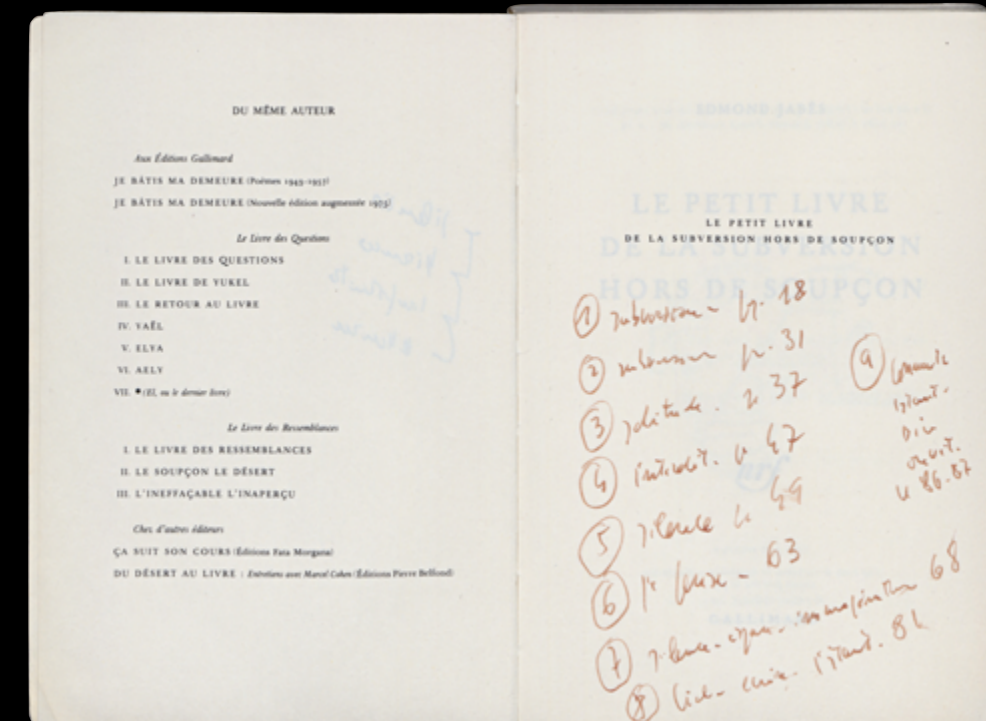 DU MÊME AUTEUR
Aux Éditions Gallimard
JE BÂTIS MA DEMEURE (Poèmes 1943-1957)
JE BÂTIS MA DEMEURE (Nouvelle édition augmentée 1975)
Le Livre des Questions
I. LE LIVRE DES QUESTIONS
II. LE LIVRE DE YUKEL
III. LE RETOUR AU LIVRE
IV. YAËL
V. ELYA
VI. AELY
VII. • (El, ou le dernier livre)
Le Livre des Ressemblances
I. LE LIVRE DES RESSEMBLANCES
II. LE SOUPÇON LE DÉSERT
III. L'INEFFAÇABLE L'INAPERÇU
Chez d'autres éditeurs
ÇA SUIT SON COURS (Éditions Fata Morgana)
DU DÉSERT AU LIVRE : Entretiens avec Marcel Cohen (Éditions Pierre Belfond)
EDMOND JABÈS
LE PETIT LIVRE
DE LA SUBVERSION
HORS DE SOUPÇON
nrf
GALLIMARD
LE PETIT LIVRE
DE LA SUBVERSION HORS DE SOUPÇON
① subversion - p. 18
② subversion p. 31
③ solitude. p 37
④ interdit. p 47
⑤ silence p 49
⑥ 63
⑦ silence 68
⑧ 84
⑨
Dieu
p 86.87